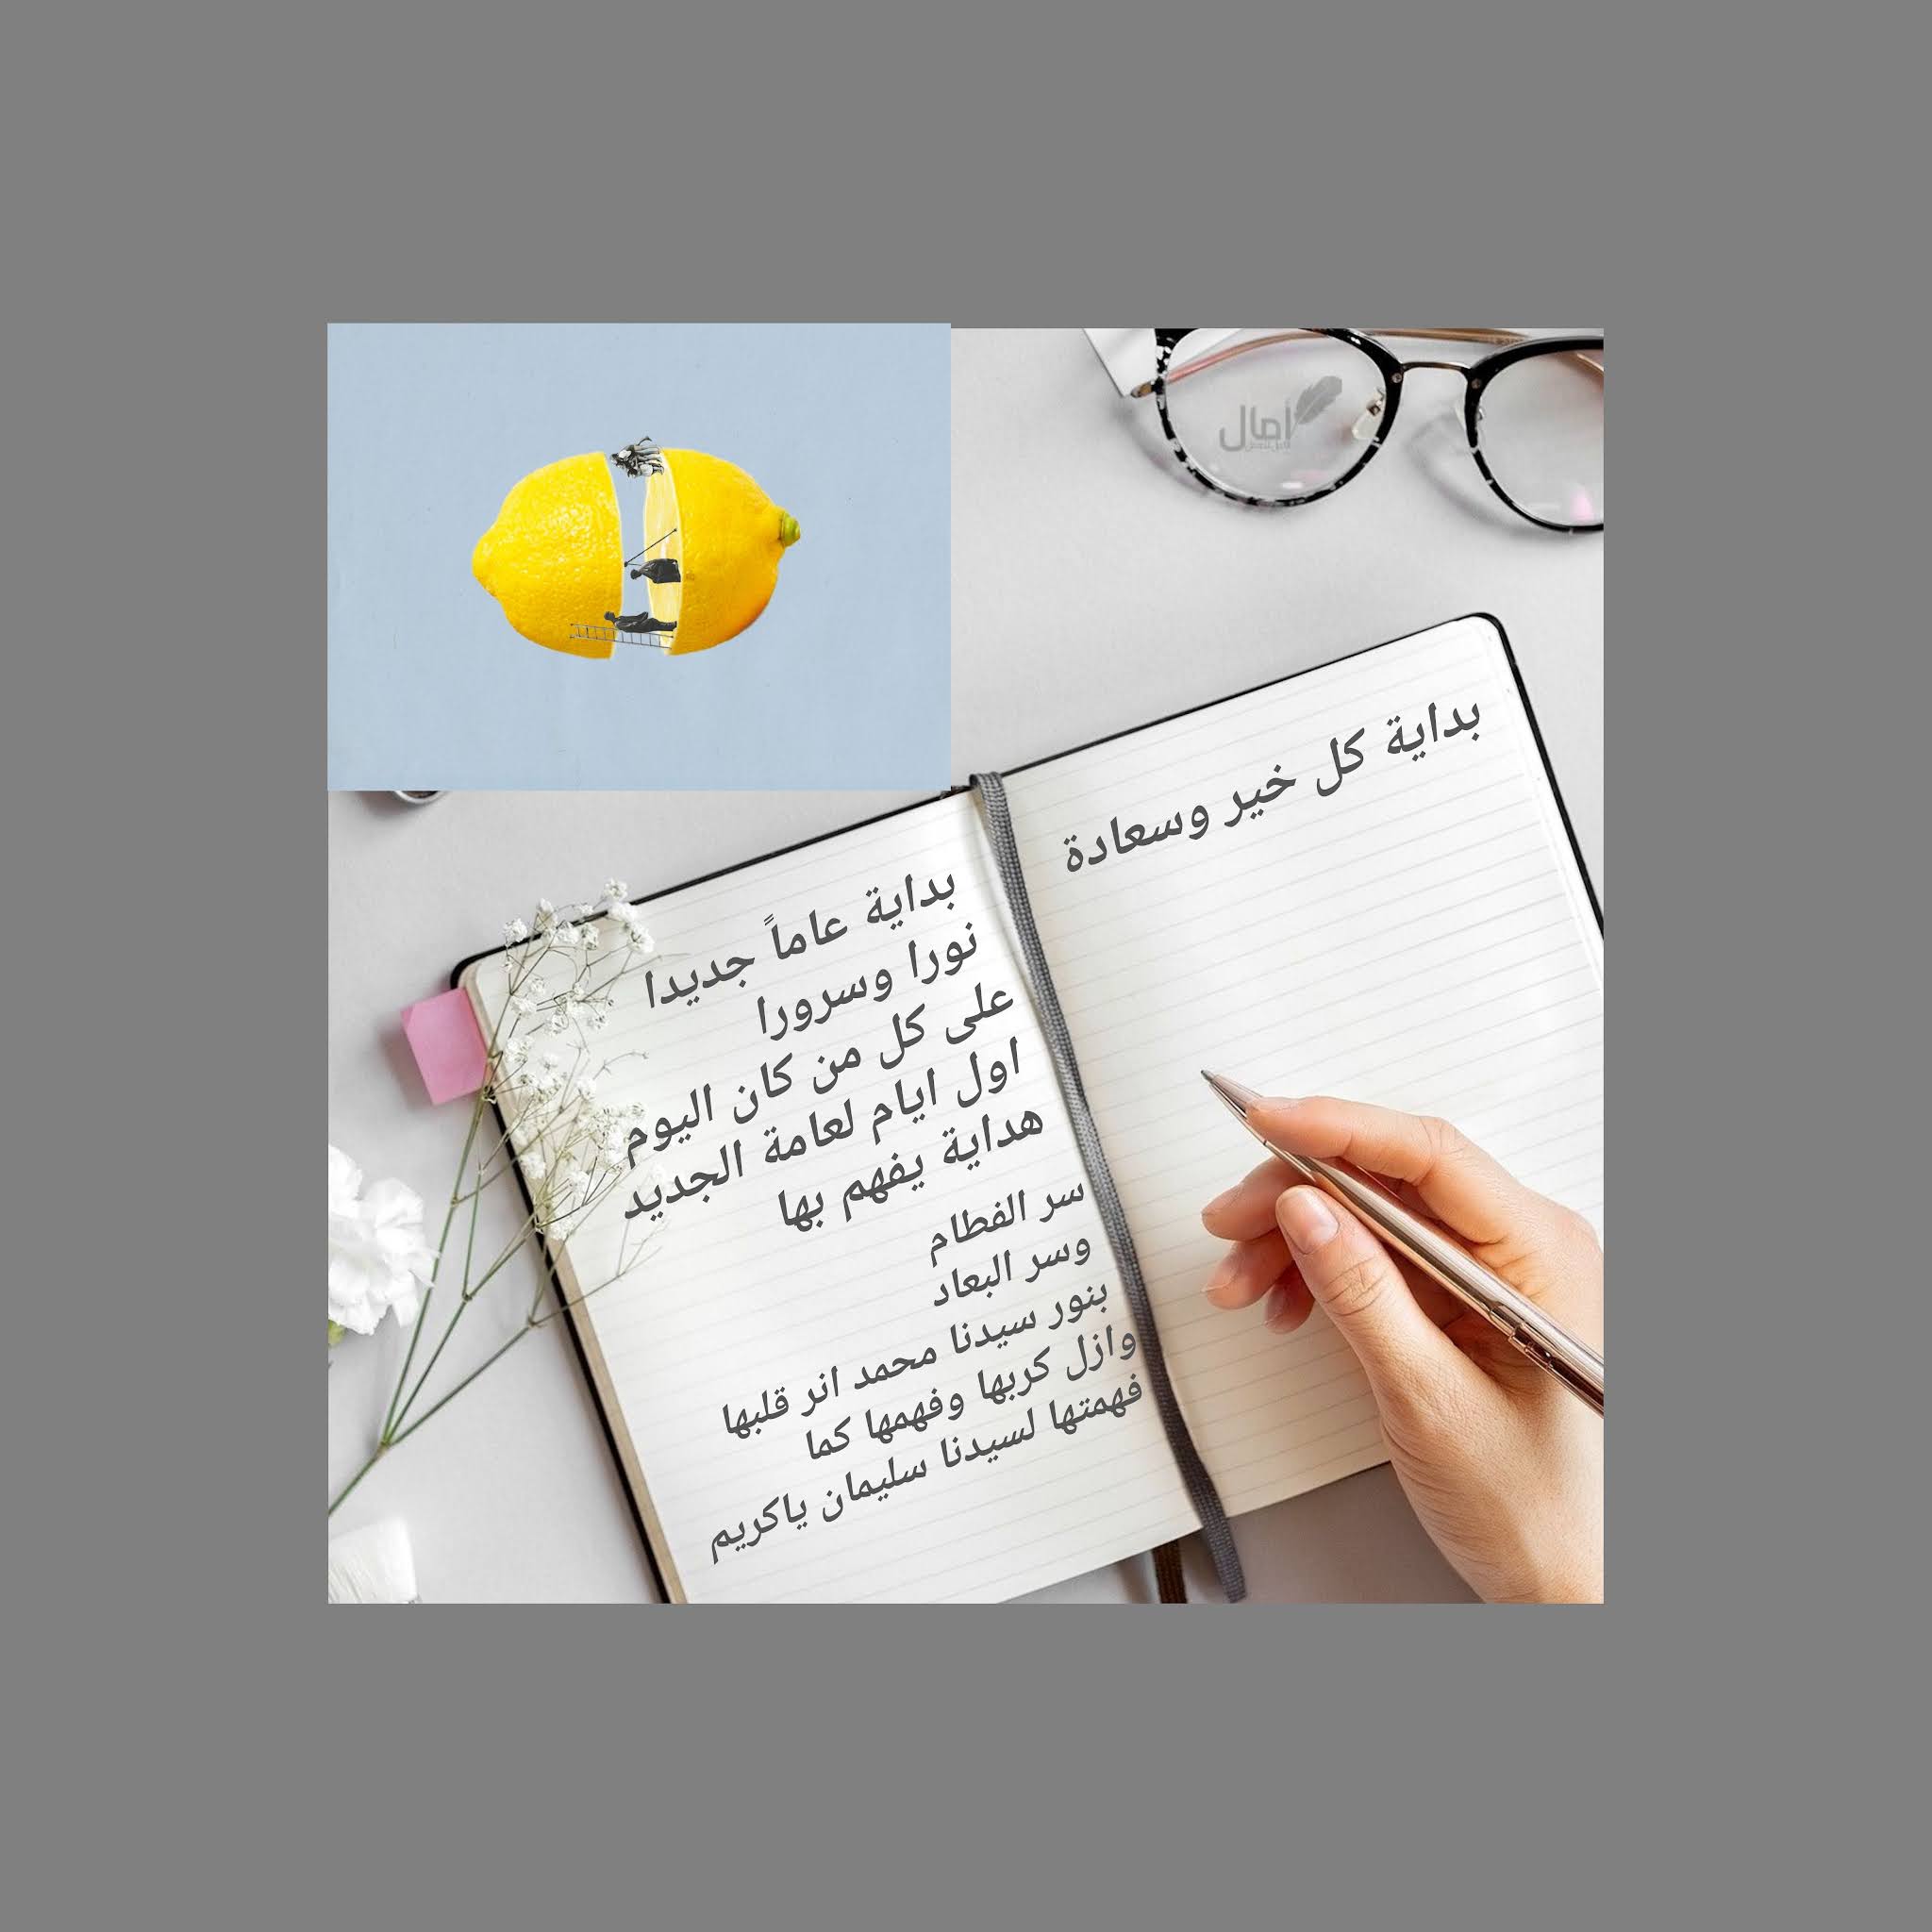 أمال
بداية كل خير وسعادة
بداية عاماً جديدا
نورا وسرورا
على كل من كان اليوم
اول ايام لعامة الجديد
هداية يفهم بها
سر الفطام
وسر البعاد
بنور سيدنا محمد انر قلبها
وازل كربها وفهمها كما
فهمتها لسيدنا سليمان ياكريم